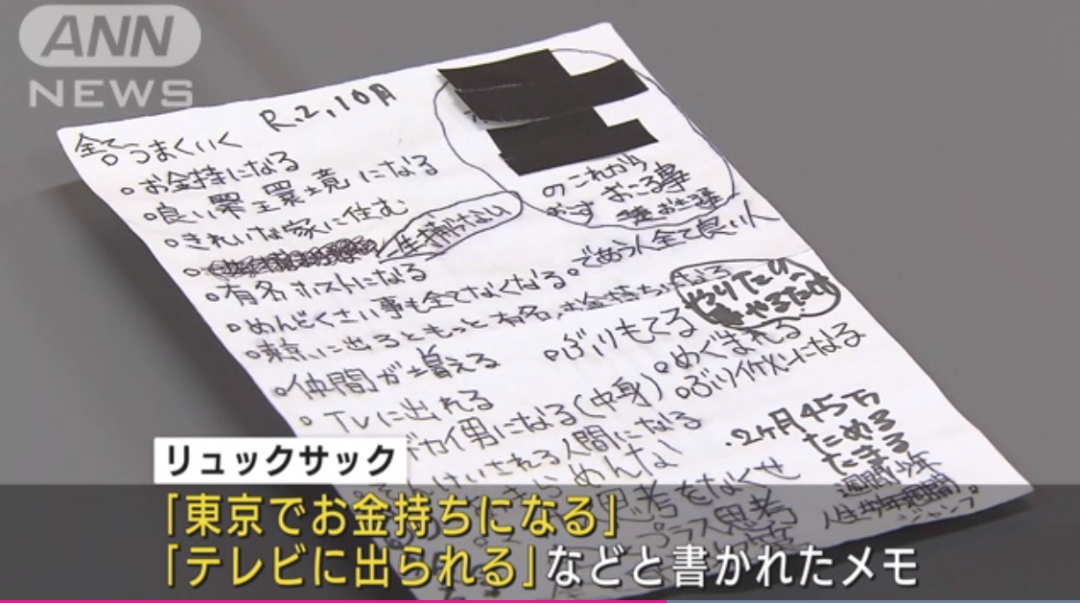 ANN
NEWS
R.2,10月
全てうまくいく
。お金持になる
。良い環境になる
。きれいな家に住む
生捕られない
のこれから
おこる事
。有名ホストになる
。めんどくさい事も全てなくなる
。であう人全て良い人
。東京に出るともっと有名、お金持ちになる
やりたい
やるだけ
。仲間が増える
。ぶりもてる
。めぐまれる
。TVに出れる
デカイ男になる(中身)
。ぶりイケメンになる
される人間になる
あきらめんな
思考をなくせ
プラス思考
.2ヶ月45万
ためる
たまる
週間少年
人生
ジャンプ
リュックサック
「東京でお金持ちになる」
「テレビに出られる」などと書かれたメモ